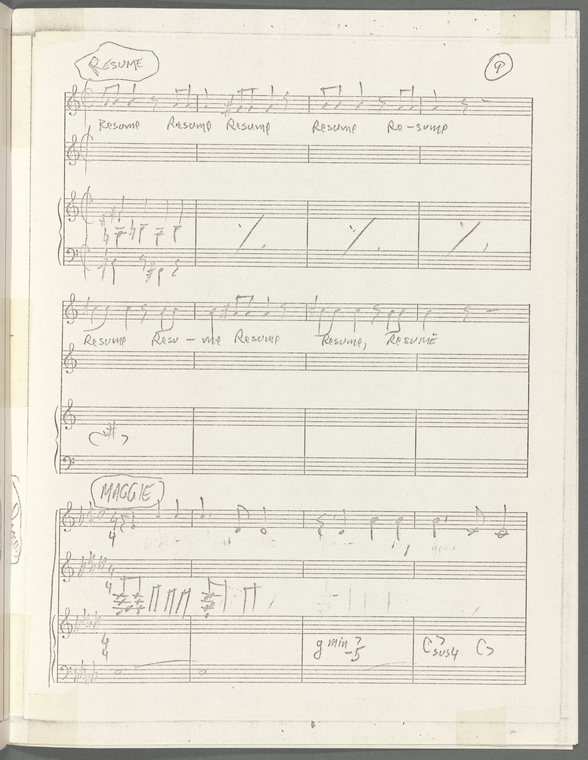 RESUME
9
Resume Resume Resume Resume Re-sume
Resume Resu-me Resume Resume, Resumé
MAGGIE
4
4
4
4
4
g min 7 -5 C7 sus4 C7